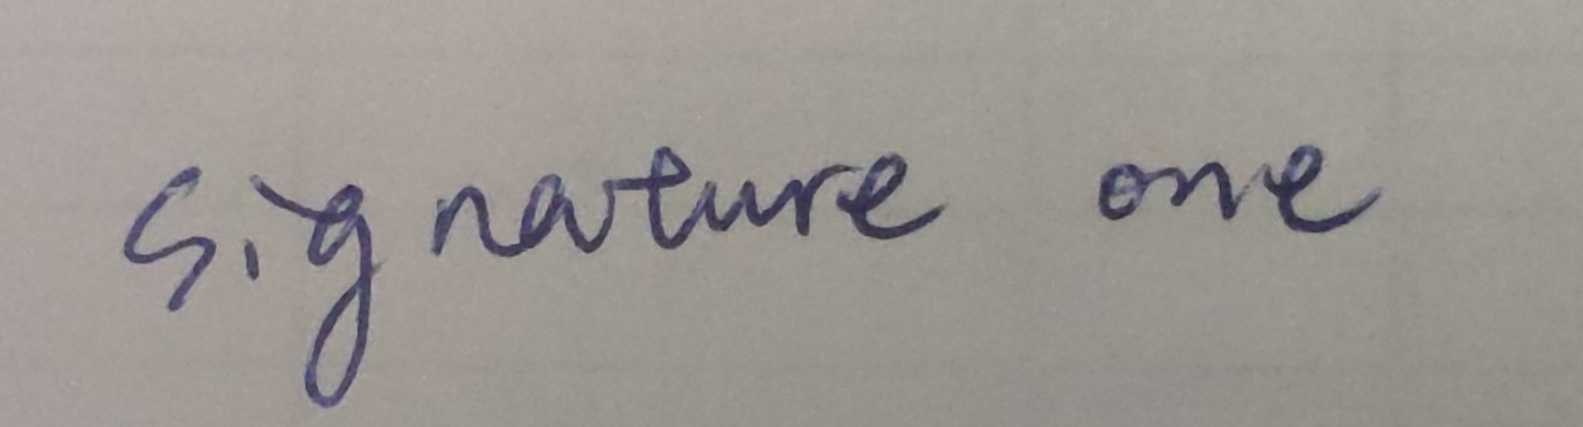 signature one